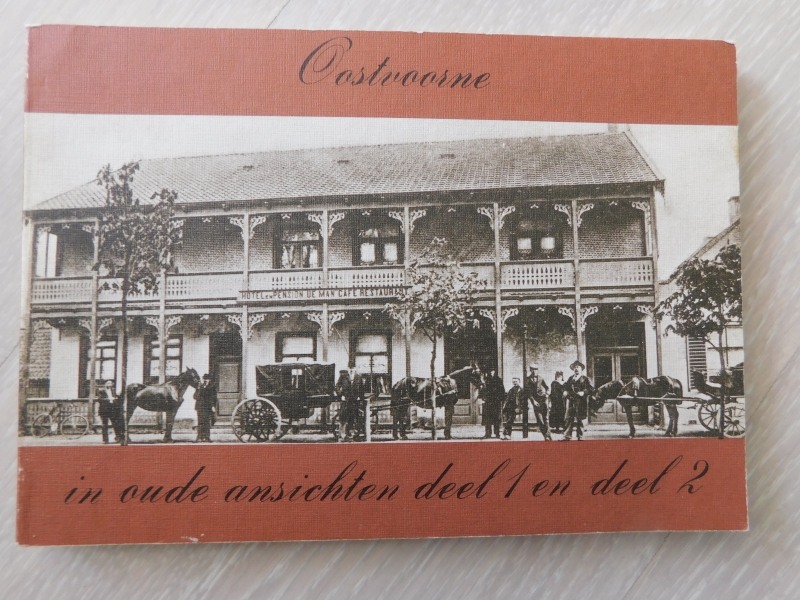 Oostvoorne
HOTEL EN PENSION DE MAN CAFÉ RESTAURANT
in oude ansichten deel 1 en deel 2